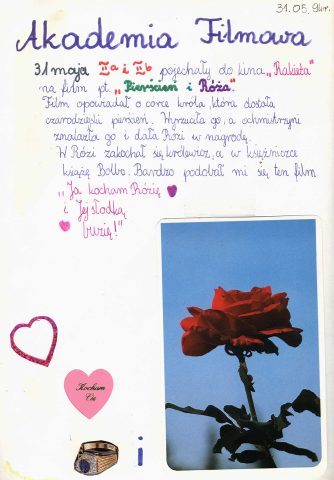 31.05.94r.
Akademia Filmowa
31 maja IIa i IIb pojechały do kina „Rakieta"
na film pt. „Pierścień i Róża".
Film opowiadał o córce króla, która dostała
czarodziejski pierścień. Wyrzuciła go, a ochmistrzyni
znalazła go i dała Rózi w nagrodę.
W Rózi zakochał się królewicz, a w księżniczce
książę Bolbo. Bardzo podobał mi się ten film
„Ja kocham Różię
i Jej słodką
buzię!"
Kocham
Cię
i